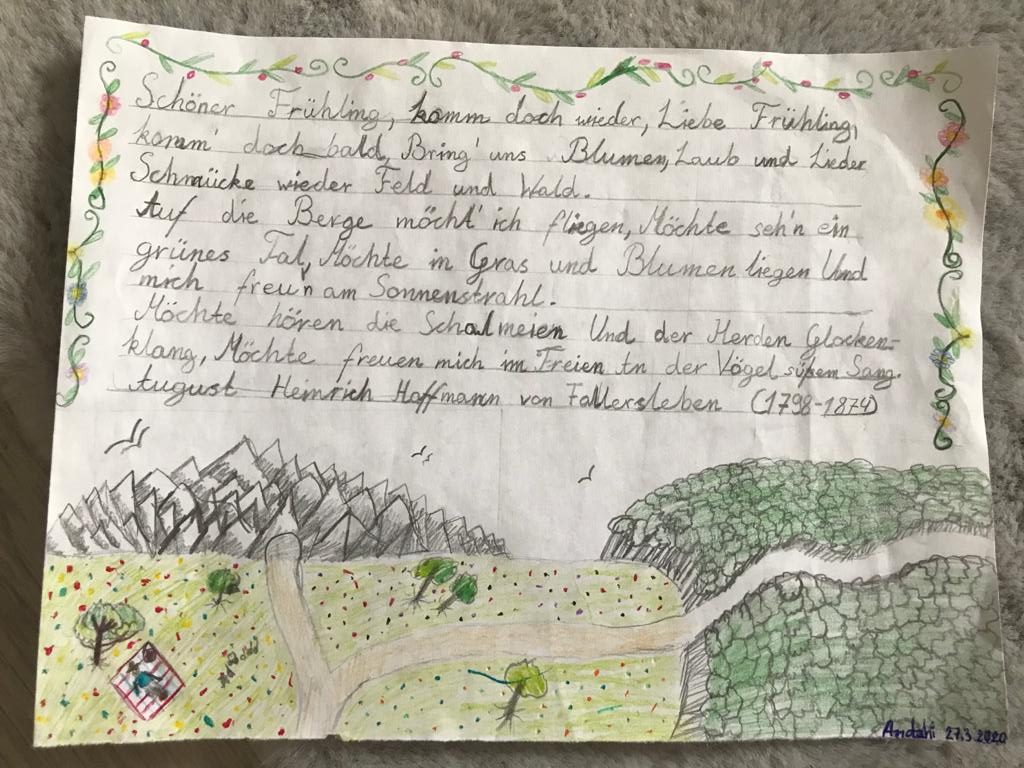 Schöner Frühling, komm doch wieder, Liebe Frühling,
komm' doch bald, Bring' uns Blumen, Laub und Lieder
Schmücke wieder Feld und Wald.
Auf die Berge möcht' ich fliegen, Möchte seh'n ein
grünes Tal, Möchte in Gras und Blumen liegen Und
mich freu'n am Sonnenstrahl.
Möchte hören die Schalmeien Und der Herden Glocken-
klang, Möchte freuen mich im Freien An der Vögel süßem Sang.
August Heinrich Hoffmann von Fallersleben (1798-1874)
Andahi 27.3.2020